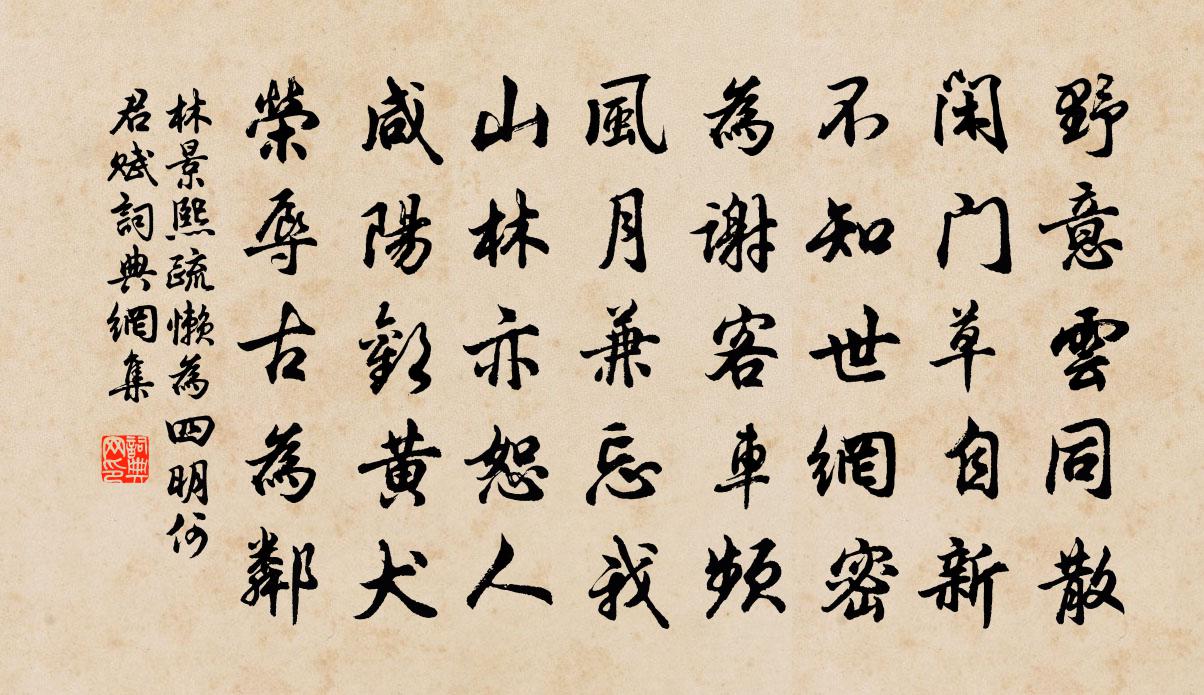 野意雲同散
閑门草自新
不知世網密
為謝客車頻
風月兼忘我
山林亦恕人
咸陽歎黃犬
榮辱古為鄰
林景熙疏懶為四明何
君賦詞典網集
詞典网印